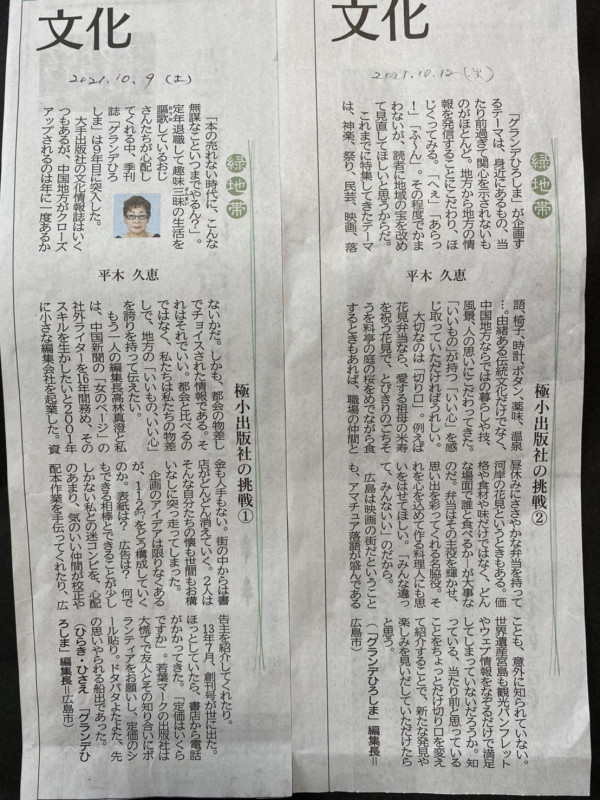 文化
2021.10.9(土)
緑地帯
平木 久恵
極小出版社の挑戦①
「本の売れない時代に、こんな
無謀なこといつまでやるん?」。
定年退職して趣味三昧の生活を
謳歌しているおじ
さんたちが心配し
てくれる中、季刊
誌「グランデひろ
しま」は9年目に突入した。
大手出版社の文化情報誌はいく
つもあるが、中国地方がクローズ
アップされるのは年に一度あるか
ないかだ。しかも、都会の物差し
でチョイスされた情報である。そ
れはそれでいい。都会と比べるの
ではなく、私たちは私たちの物差
しで、地方の「いいもの、いい心」
を誇りを持って伝えたい。
もう一人の編集長高林真澄と私
は、中国新聞の「女のページ」の
社外ライターを16年間務め、その
スキルを生かしたいと2001年
に小さな編集会社を起業した。資
金も人手もない。街の中からは書
店がどんどん消えていく。2人は
そんな自分たちの懐も世間もお構
いなしに突っ走ってしまった。
企画のアイデアは限りなくある
が、112㌻をどう構成していく
のか。表紙は? 広告は? 何で
もできる相棒とできることが少し
しかない私との迷コンビを、心配
のあまり、気のいい仲間が校正や
配本作業を手伝ってくれたり、広
告主を紹介してくれたり。
13年7月、創刊号が世に出た。
ほっとしていたら、書店から電話
がかかってきた。「定価はいくら
ですか」。若葉マークの出版社は
大慌てで友人とその知り合いにボ
ランティアをお願いし、定価のシ
ール貼り。ドタバタよたよた、先
の思いやられる船出であった。
(ひらき・ひさえ 「グランデひ
ろしま」編集長=広島市)
文化
2021.10.12(火)
緑地帯
平木 久恵
極小出版社の挑戦②
「グランデひろしま」が企画す
るテーマは、身近にあるもの、当
たり前過ぎて関心を示されないも
のがほとんど。地方から地方の情
報を発信することにこだわり、ほ
じくってみる。「へぇ」「あらっ
!」「ふ〜ん」。その程度でかま
わないが、読者に地域の宝を改め
て見直してほしいと思うからだ。
これまでに特集してきたテーマ
は、神楽、祭り、民芸、映画、落
語、椅子、時計、ボタン、薬味、温泉
…。由緒ある伝統文化だけでなく、
中国地方ならではの暮らしや技、
風景、人の思いにこだわってきた。
「いいもの」が持つ「いい心」を感
じ取っていただければうれしい。
大切なのは「切り口」。例えば
花見弁当なら、愛する祖母の米寿
を祝う花見で、とびきりのごちそ
うを料亭の庭の桜をめでながら食
するときもあれば、職場の仲間と
昼休みにささやかな弁当を持って
河岸の花見というときもある。価
格や食材や味だけではなく、どん
な場面で誰と食べるか―が大事な
のだ。弁当はその主役を輝かせ、
思い出を彩ってくれる名脇役。そ
れを心を込めて作る料理人にも思
いをはせてほしい。「みんな違っ
て、みんないい」のだから。
広島は映画の街だということ
も、アマチュア落語が盛んである
ことも、意外に知られていない。
世界遺産宮島も観光パンフレット
やウェブ情報をなぞるだけで満足
してしまっていないだろうか。知
っている、当たり前と思っている
ことをちょっとだけ切り口を変え
て紹介することで、新たな発見や
楽しみを見いだしていただけたら
と思う。
(「グランデひろしま」編集長=
広島市)